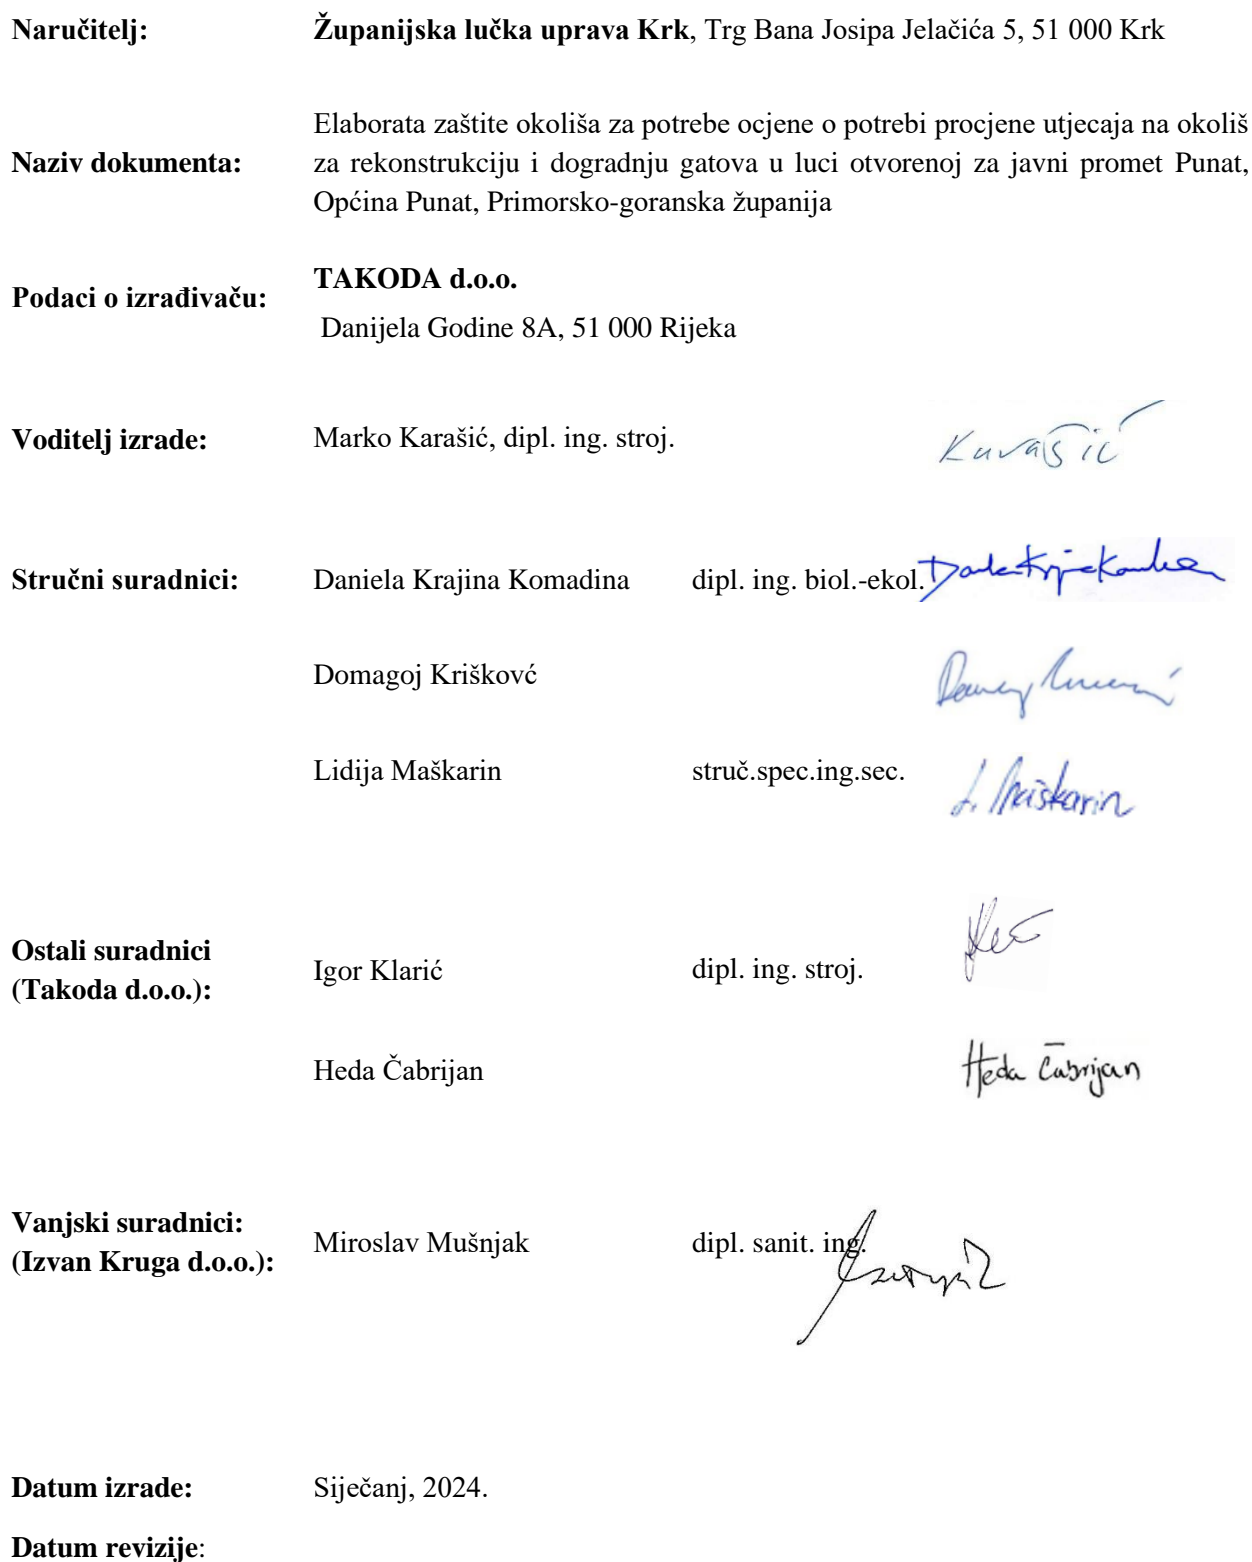 Naručitelj: Županijska lučka uprava Krk, Trg Bana Josipa Jelačića 5, 51 000 Krk
Elaborata zaštite okoliša za potrebe ocjene o potrebi procjene utjecaja na okoliš
Naziv dokumenta: za rekonstrukciju i dogradnju gatova u luci otvorenoj za javni promet Punat,
Općina Punat, Primorsko-goranska županija
Podaci o izrađivaču: TAKODA d.o.o.
Danijela Godine 8A, 51 000 Rijeka
Voditelj izrade: Marko Karašić, dipl. ing. stroj. Karašić
Stručni suradnici: Daniela Krajina Komadina dipl. ing. biol.-ekol.
Domagoj Kriškovć
Lidija Maškarin struč.spec.ing.sec. L. Maškarin
Ostali suradnici
(Takoda d.o.o.): Igor Klarić dipl. ing. stroj.
Heda Čabrijan Heda Čabrijan
Vanjski suradnici:
(Izvan Kruga d.o.o.): Miroslav Mušnjak dipl. sanit. ing.
Datum izrade: Siječanj, 2024.
Datum revizije: